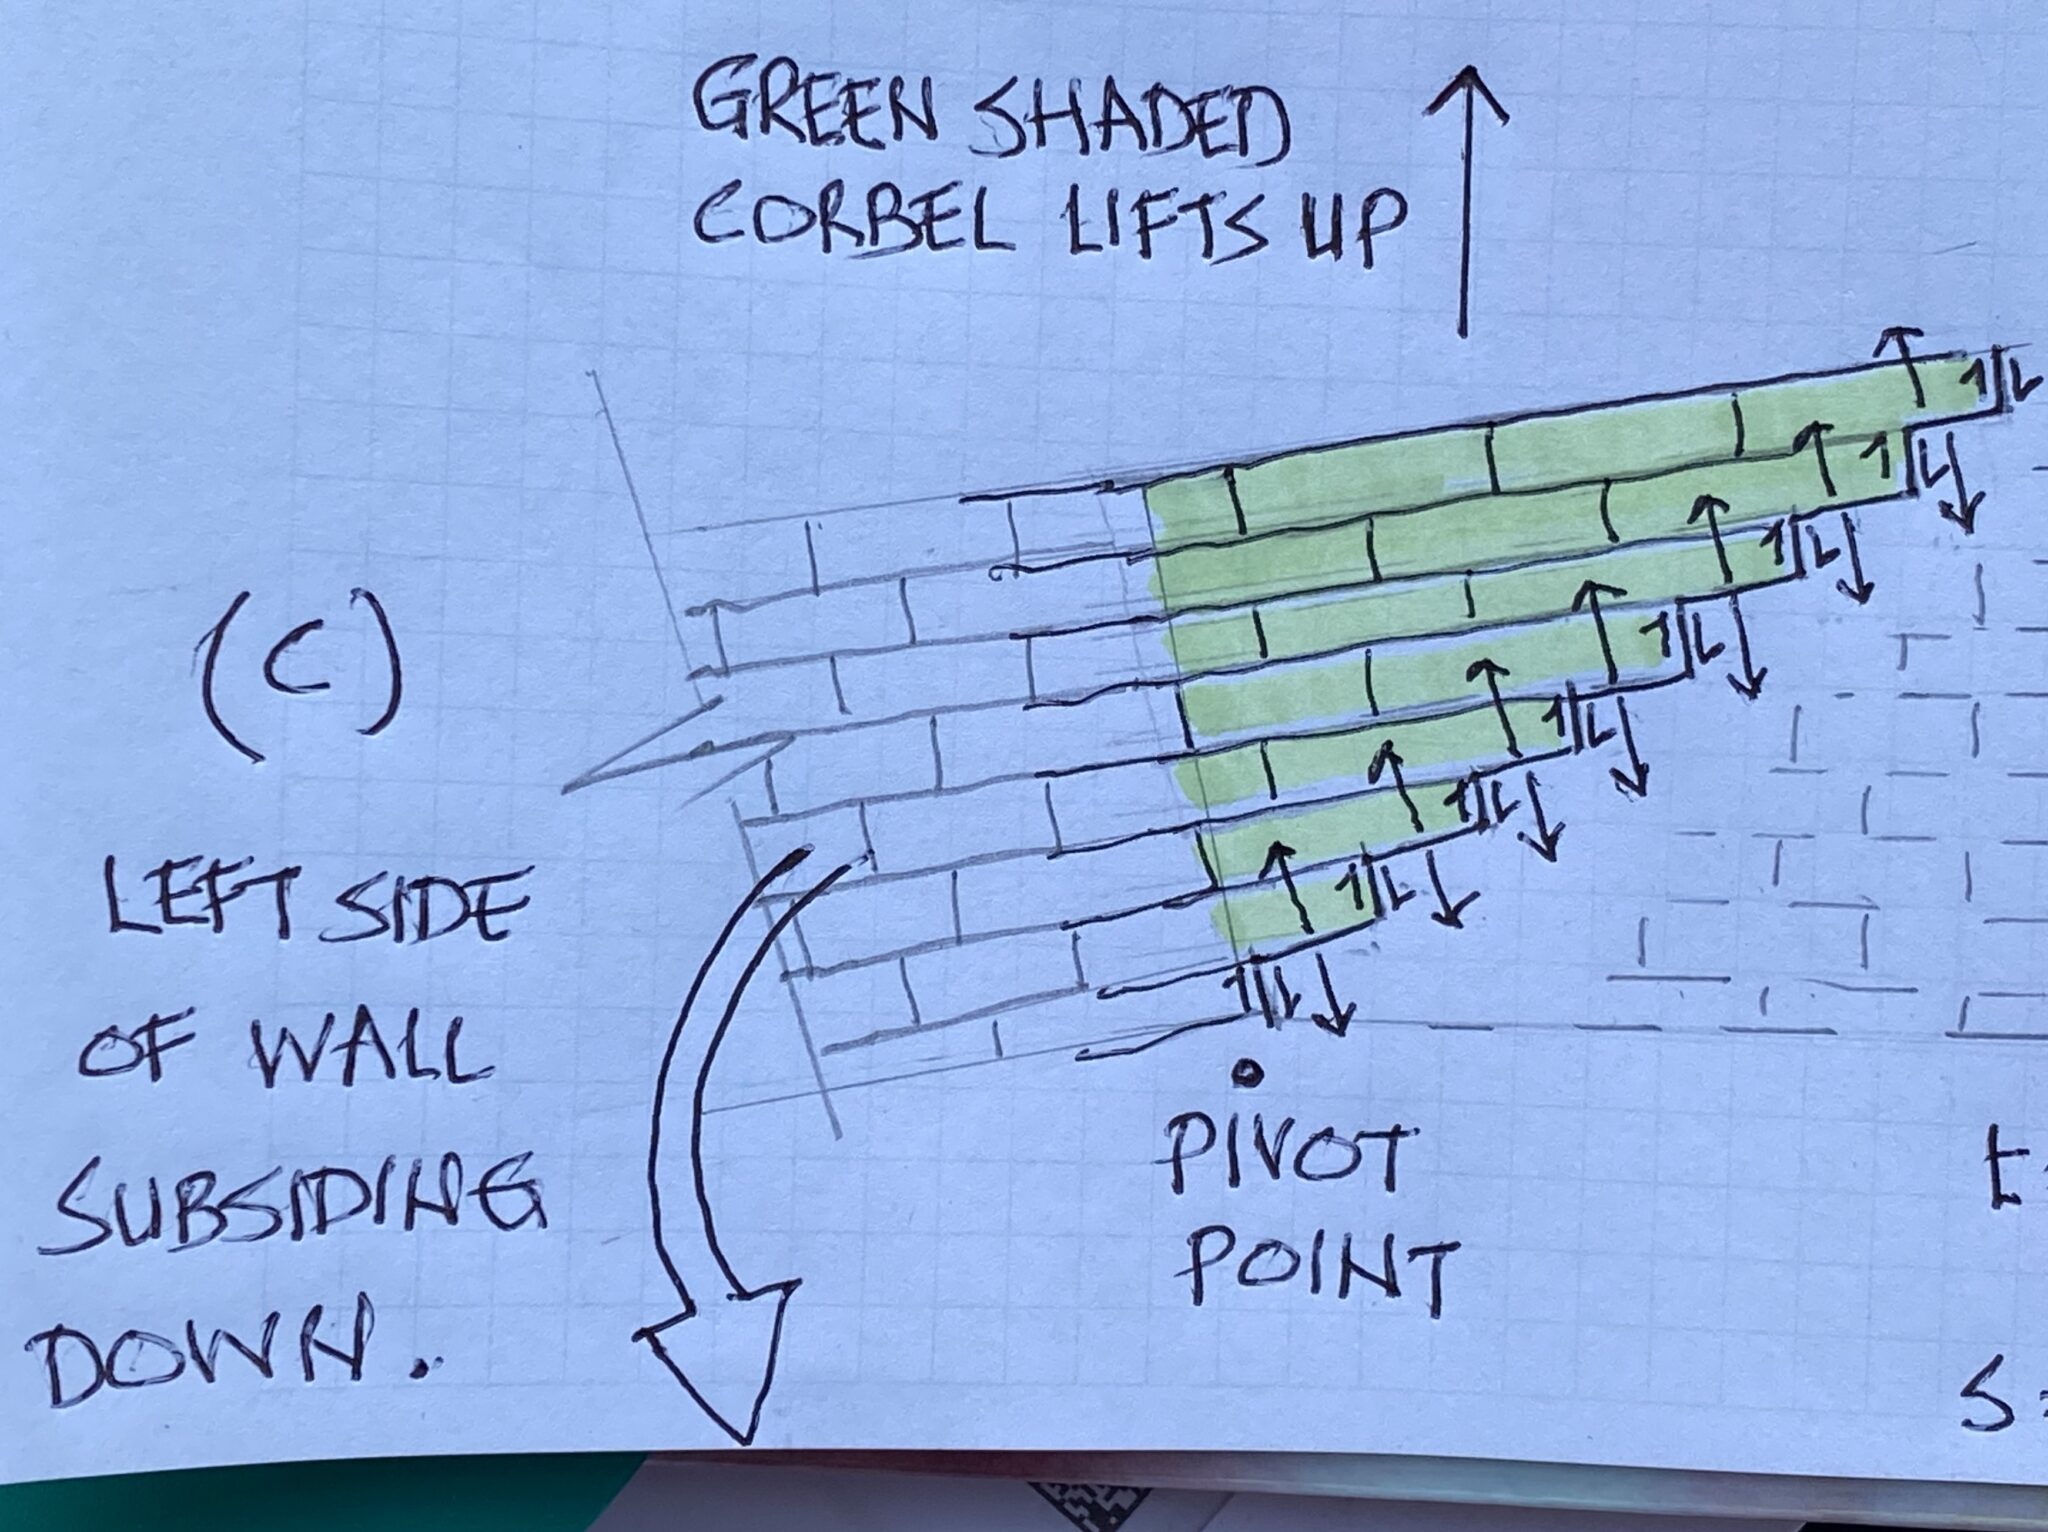 GREEN SHADED
CORBEL LIFTS UP
(C)
LEFT SIDE
OF WALL
SUBSIDING
DOWN.
PIVOT
POINT
t
S